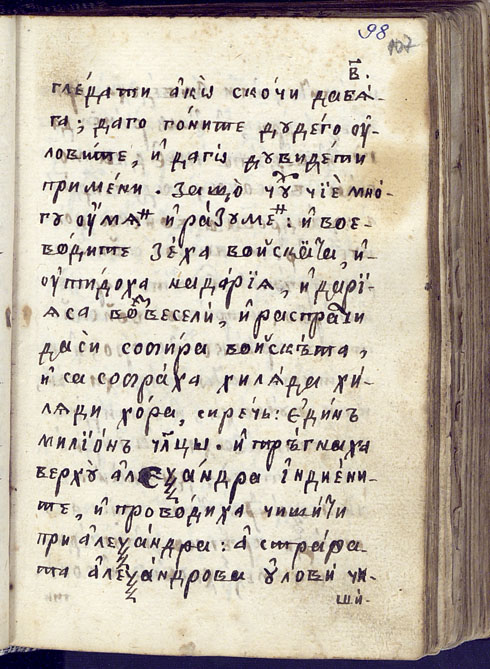 98
107
в҃.
глѐдати ако̀ скочи дабѧ́-
га; даго го́ните дудѐго оу̓-
ло́вите, и҆ даго̀ дувидѐти
примѐни. защо̀ чꙋ҃ чїе мно́-
гу оу҆мѧ и҆ ра́зуме: и҆ вое-
во́дите зѐха войска́та, и҆-
оу҆ти́доха надарїѧ, и҆ дарї-
ѧса воⷥвесели, и҆ распра́ти
даси сопира войскѣта,
и҆ са сопра́ха хилѧда хи́-
лѧди хо́ра, сирѐчь: є҆ди́нъ
милїо́нъ чл҃цы. и҆ прѣгнаха
верхꙋ̀ а҆леѯа́ндра і҆ндиѐни-
те, и҆ прово́диха чиши́ти
при а҆леѯа́ндра: а҆ стра́ра
та а҆леѯа́ндрова у҆лови́ чи-
ши́-